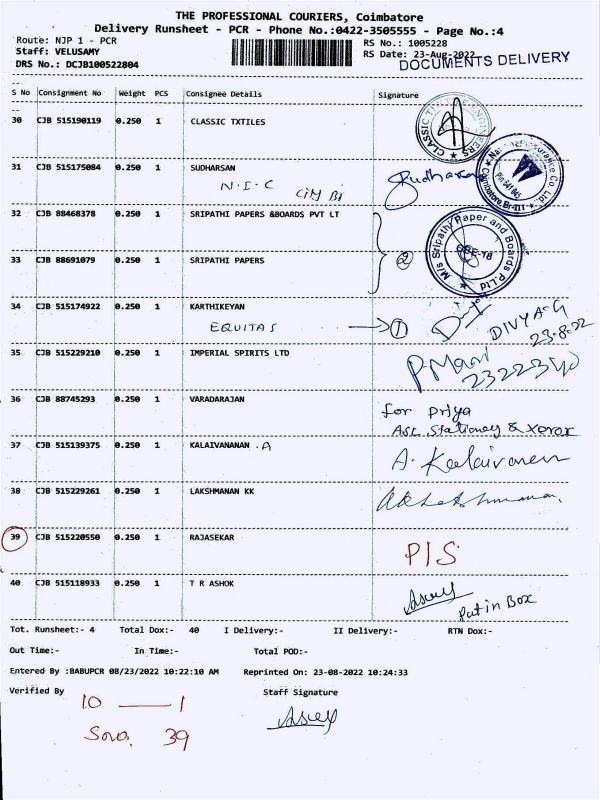 THE PROFESSIONAL COURIERS, Coimbatore
Delivery Runsheet - PCR - Phone No.:0422-3505555 - Page No.:4
Route: NJP 1 - PCR
RS No.: 1005228
Staff: VELUSAMY
RS Date: 23-Aug-2022
DRS No.: DCJB100522804
DOCUMENTS DELIVERY
S No Consignment No Weight PCS Consignee Details Signature
30 CJB 515190119 0.250 1 CLASSIC TXTILES
CLASSIC
31 CJB 515175084 0.250 1 SUDHARSAN Sudharsan
N.I.C
Insurance Co. Ltd.
Coimbatore Br-III
32 CJB 88468378 0.250 1 SRIPATHI PAPERS &BOARDS PVT LT
M/s Sripathi Paper and Boards P.Ltd
CBE-18
33 CJB 88691079 0.250 1 SRIPATHI PAPERS 2
34 CJB 515174922 0.250 1 KARTHIKEYAN
EQUITAS 1 DIVYA-G
23-8-22
35 CJB 515229210 0.250 1 IMPERIAL SPIRITS LTD P. Mani
36 CJB 88745293 0.250 1 VARADARAJAN for priya
Stationey & Xerox
37 CJB 515139375 0.250 1 KALAIVANANAN .A A. Kalaivanan
38 CJB 515229261 0.250 1 LAKSHMANAN KK
39 CJB 515220550 0.250 1 RAJASEKAR P/S
40 CJB 515118933 0.250 1 T R ASHOK
Put in Box
Tot. Runsheet:- 4 Total Dox:- 40 I Delivery:- II Delivery:- RTN Dox:-
Out Time:- In Time:- Total POD:-
Entered By :BABUPCR 08/23/2022 10:22:10 AM Reprinted On: 23-08-2022 10:24:33
Verified By Staff Signature
10 — 1
39